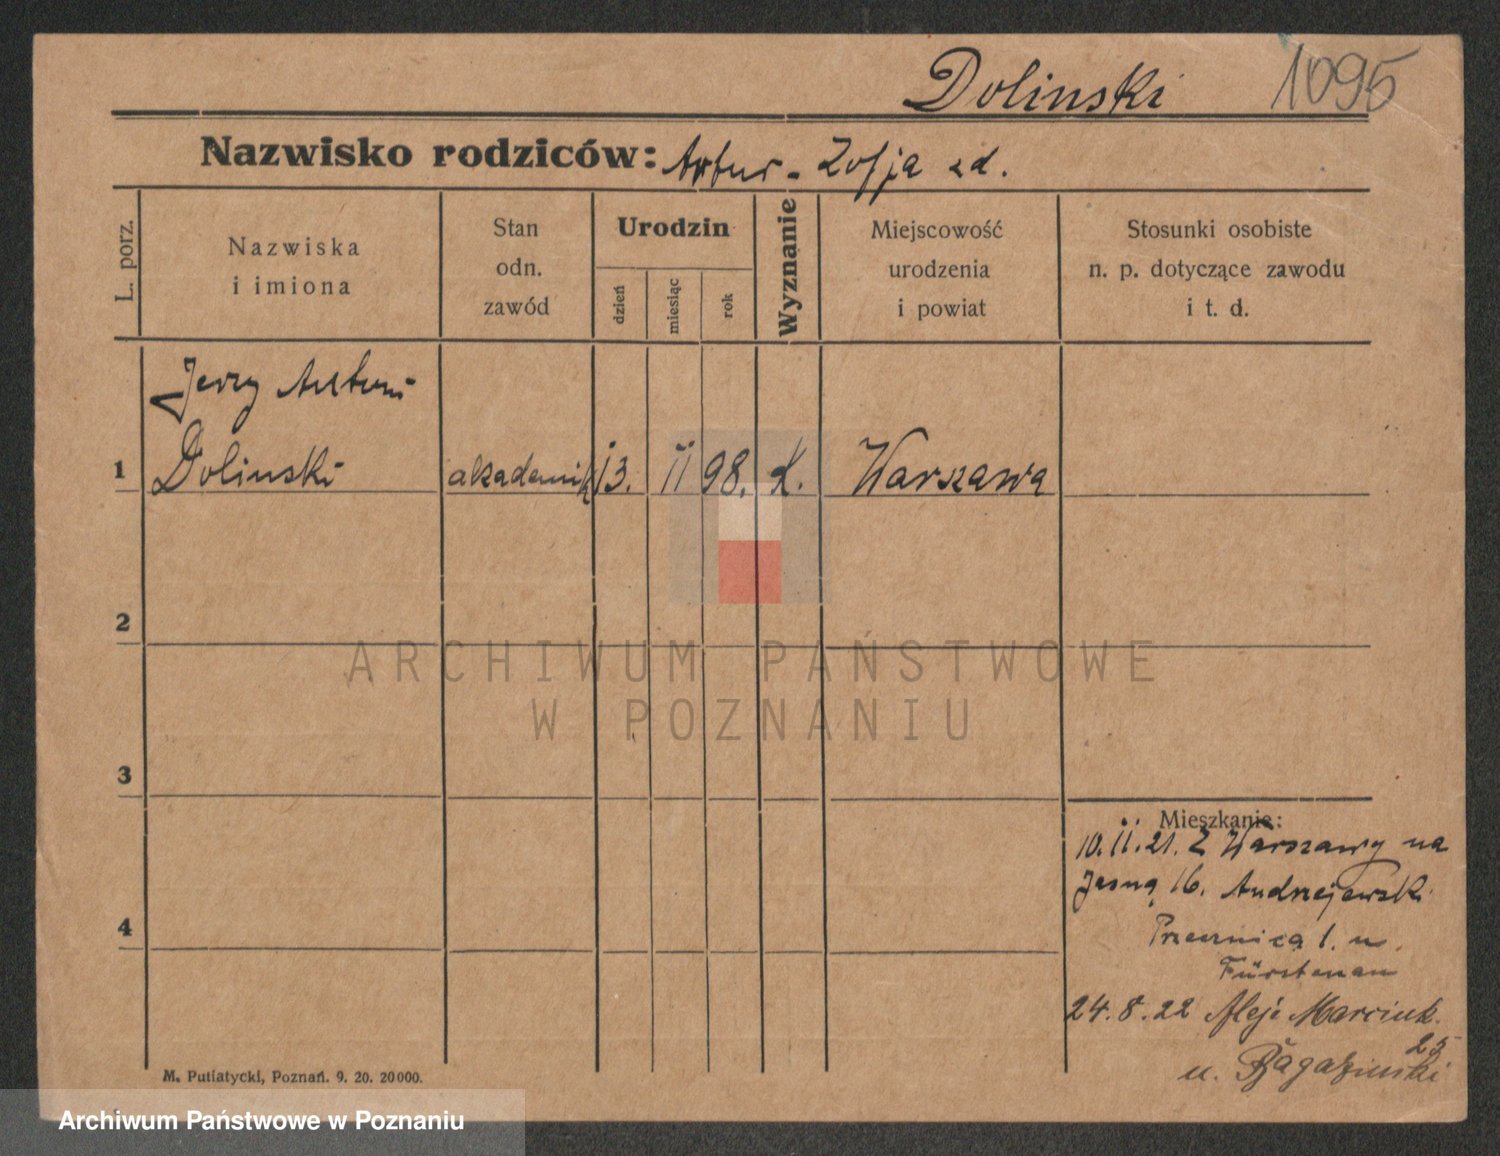 Dolinski 1095
Nazwisko rodziców: Artur - Zofja zd.
L. porz.
Nazwiska
i imiona
Stan
odn.
zawód
Urodzin
dzień
miesiąc
rok
Wyznanie
Miejscowość
urodzenia
i powiat
Stosunki osobiste
n. p. dotyczące zawodu
i t. d.
Jerzy Antoni
1 Dolinski akademik 13. 11 98. k. Warszawa
2
3
4
Mieszkanie:
10.11.21. Z Warszawy na
Jasną 16. Andrzejewski
Przecznica 1. u.
Fürstenau
24.8.22 Aleje Marcink.
25
u.
M. Putiatycki, Poznań. 9. 20. 20000.
ARCHIWUM PAŃSTWOWE
W POZNANIU
Archiwum Państwowe w Poznaniu